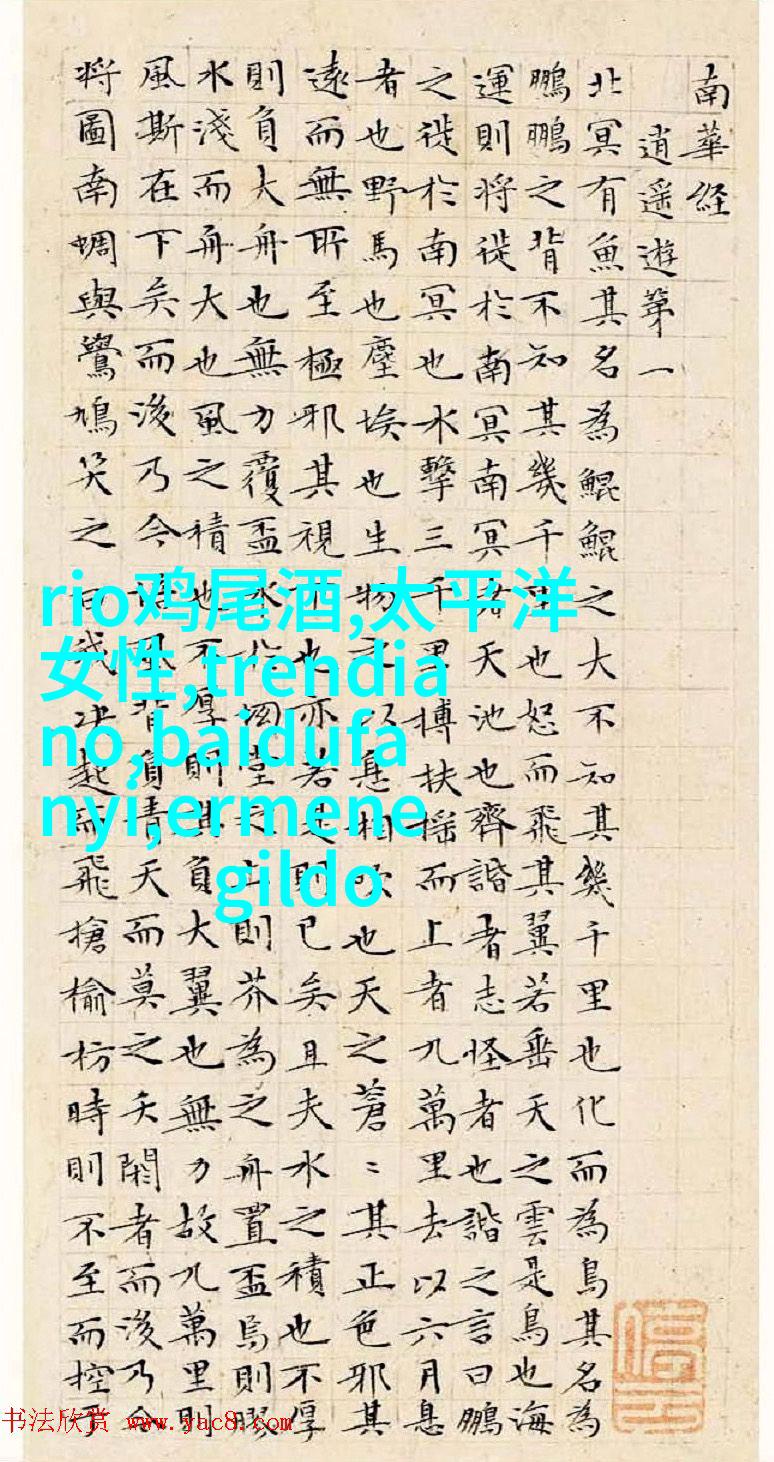 南華経
逍遥遊第一
北冥有魚其名為鯤鯤之大不知其幾千里也化而為鳥其名為
鵬鵬之背不知其幾千里也怒而飛其翼若垂天之雲是鳥也海
運則将徙於南冥南冥者天池也齊諧者志怪者也諧之言曰鵬
之徙於南冥也水擊三千里摶扶揺而上者九萬里去以六月息
者也野馬也塵埃也生物之以息相吹也天之蒼〻其正色邪其
遠而無所至極邪其視下也亦若是則已矣且夫水之積也不厚
則負大舟也無力覆盃水於坳堂之上則芥為之舟置盃焉則膠
水淺而舟大也風之積也不厚則其負大翼也無力故九萬里則
風斯在下矣而後乃今培風背負青天而莫之夭閼者而後乃今
将圖南蜩與鷽鳩笑之曰我决起而飛搶榆枋時則不至而控於
rio鸡尾酒,太平洋
女性,trendia
no,baidufa
nyi,ermene
gildo
书法欣赏 www.yac8.com